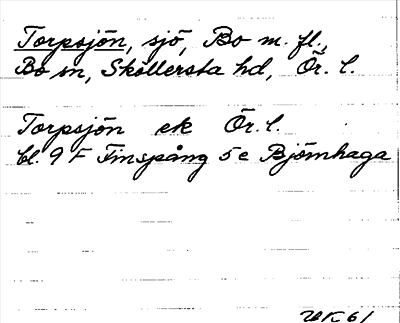 Torpsjön, sjö, Bo m. fl.,
Bo sn, Sköllersta hd, Ör. l.
Torpsjön ek Ör. l.
bl. 9 F Finspång 5 e Björnhaga
UK 61